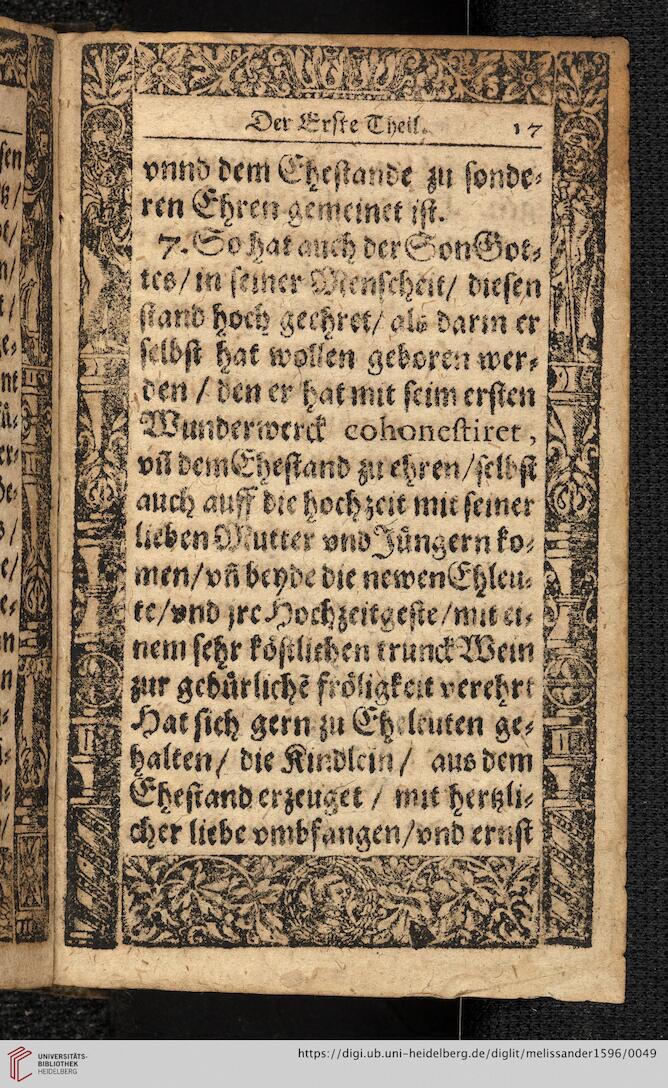 Der Erste Theil. 17
vnnd dem Ehestande zu sonde⸗
ren Ehren gemeinet ist.
7. So hat auch der Son Got⸗
tes/ in seiner Menscheit/ diesen
stand hoch geehret/ als darin er
selbst hat wollen geboren wer⸗
den / den er hat mit seim ersten
Wunderwerck cohonestiret,
vñ dem Ehestand zu ehren/selbst
auch auff die hochzeit mit seiner
lieben Mutter vnd Jüngern ko⸗
men/vñ beyde die newen Ehleu⸗
te/vnd jre Hochzeitgeste/mit ei⸗
nem sehr köstlichen trunck Wein
zur gebürlichẽ fröligkeit verehrt
Hat sich gern zu Eheleuten ge⸗
halten/ die Kindlein/ aus dem
Ehestand erzeuget / mit hertzli⸗
cher liebe vmbfangen/vnd ernst
UNIVERSITÄTS-
BIBLIOTHEK
HEIDELBERG
https://digi.ub.uni-heidelberg.de/diglit/melissander1596/0049